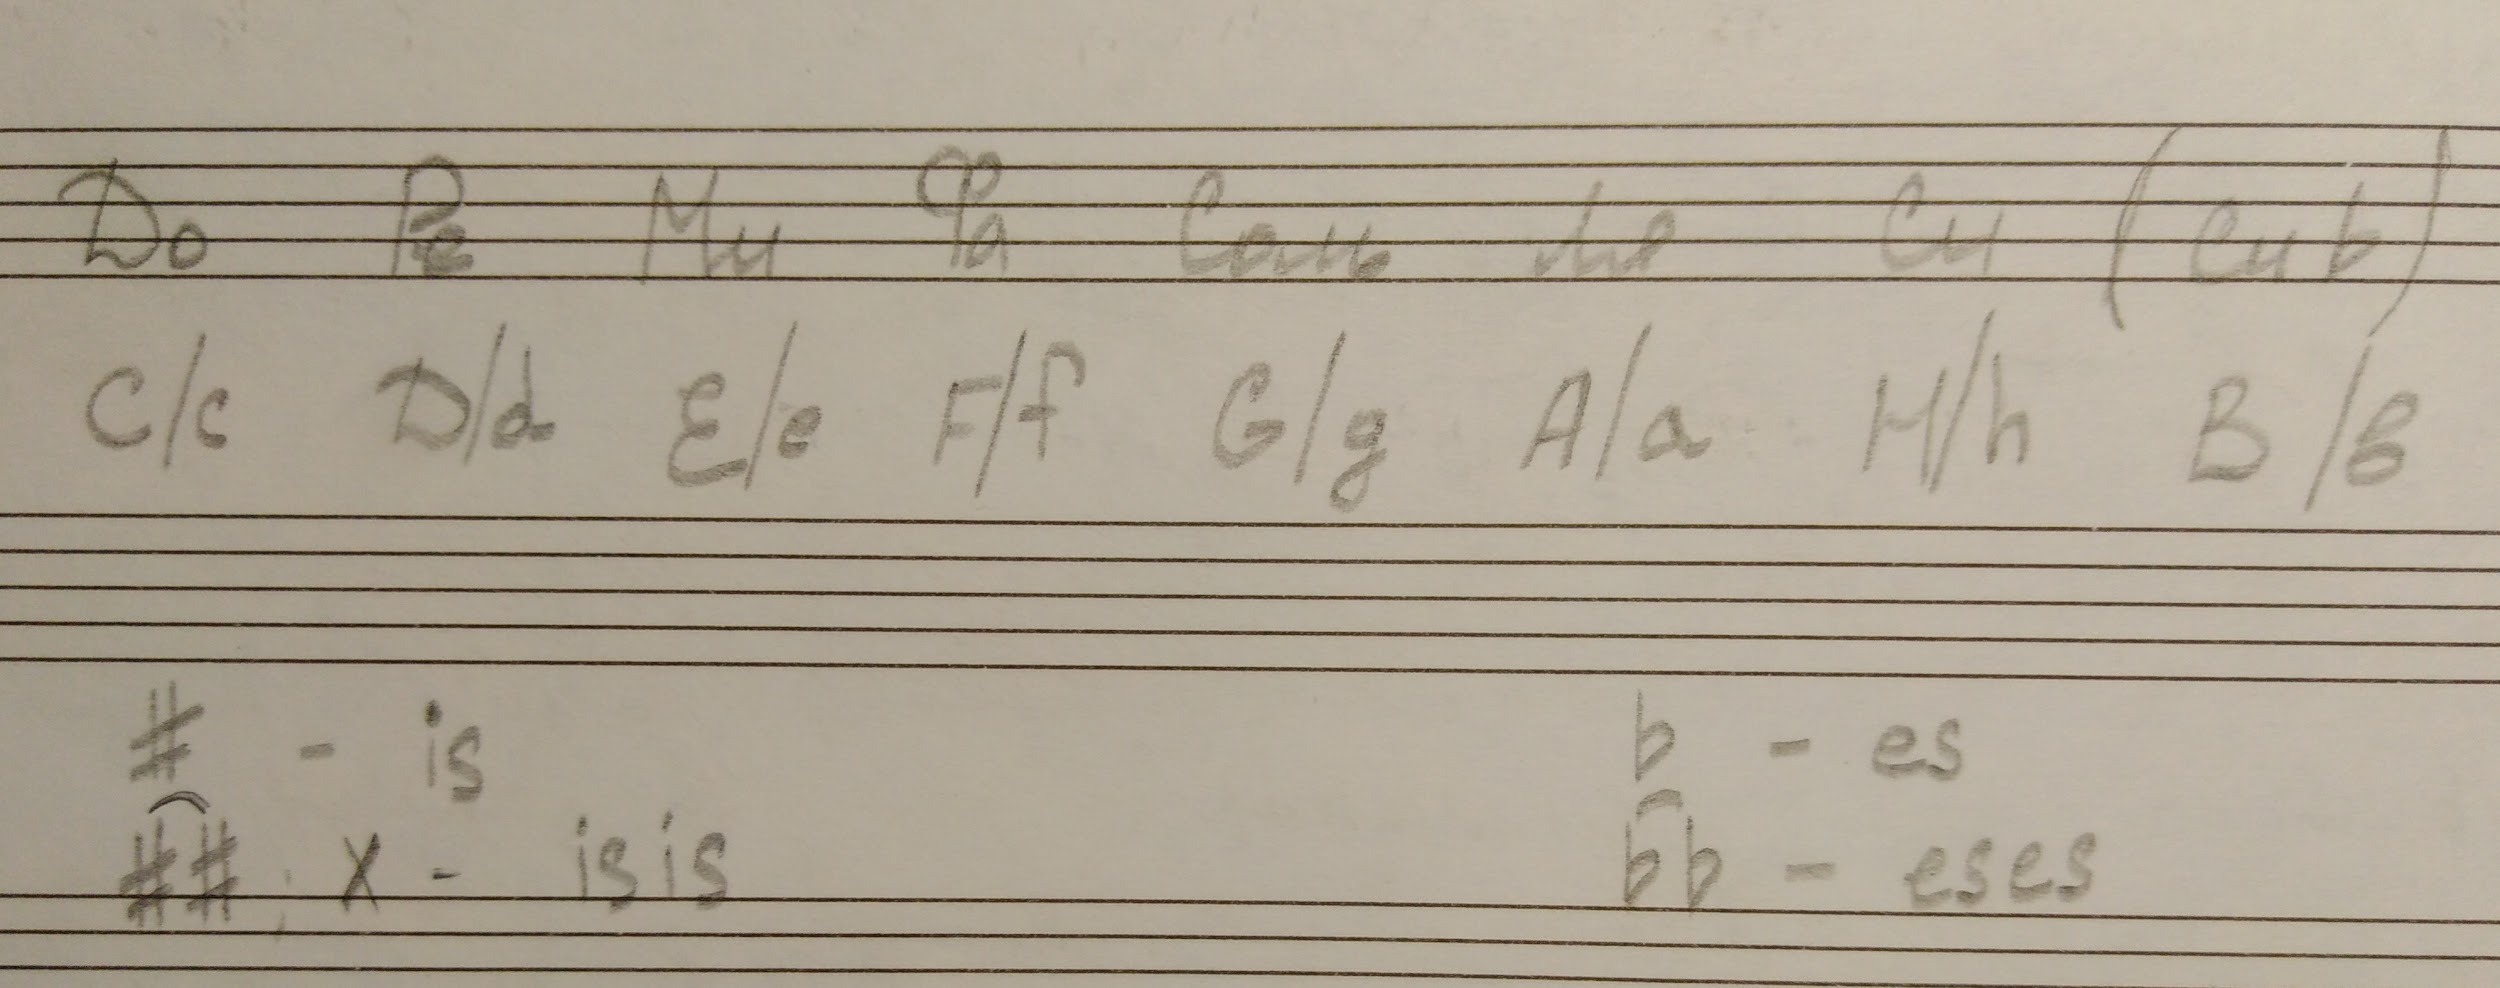 До Ре Ми Фа Соль Ля Си (Си b)
C/c D/d E/e F/f G/g A/a H/h B/в
# - is b - es
##, x - isis bb - eses